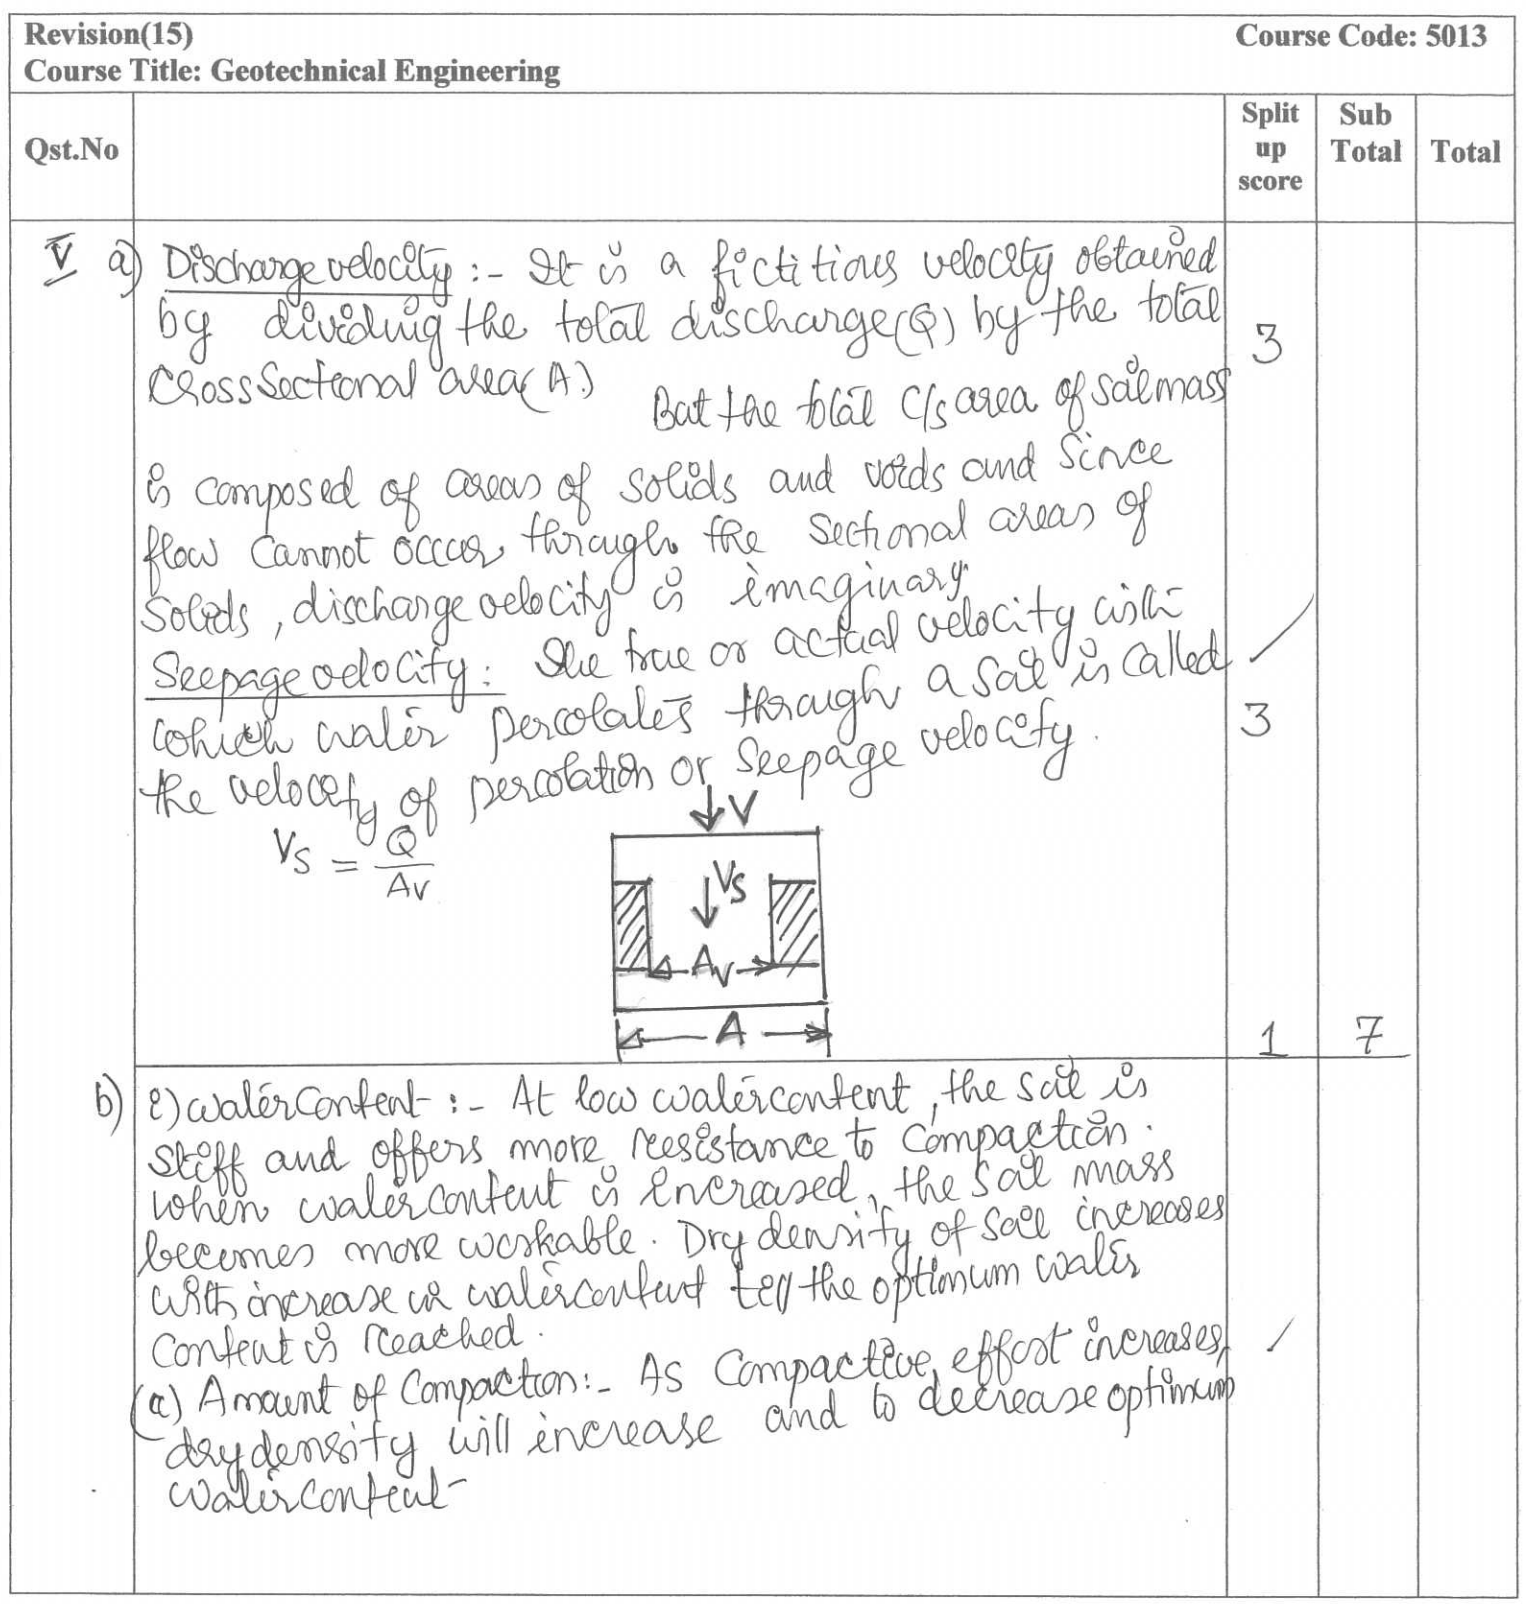 Revision(15) Course Code: 5013
Course Title: Geotechnical Engineering
Qst.No Split up score Sub Total Total
V a) Discharge velocity :- It is a fictitious velocity obtained
by dividing the total discharge(Q) by the total
Cross Sectional area(A.) 3
But the total C/s area of soil mass
is composed of areas of solids and voids and since
flow cannot occur through the sectional areas of
solids, discharge velocity is imaginary.
Seepage velocity: The true or actual velocity with
which water percolates through a soil is called 3
the velocity of percolation or seepage velocity.
Vs = Q/Av
V
Vs
Av
A
1 7
b) i) water Content :- At low water content, the soil is
stiff and offers more resistance to compaction.
When water content is increased, the soil mass
becomes more workable. Dry density of soil increases
with increase in water content till the optimum water
content is reached.
(ii) Amount of Compaction:- As Compactive effort increases,
dry density will increase and to decrease optimum
water content